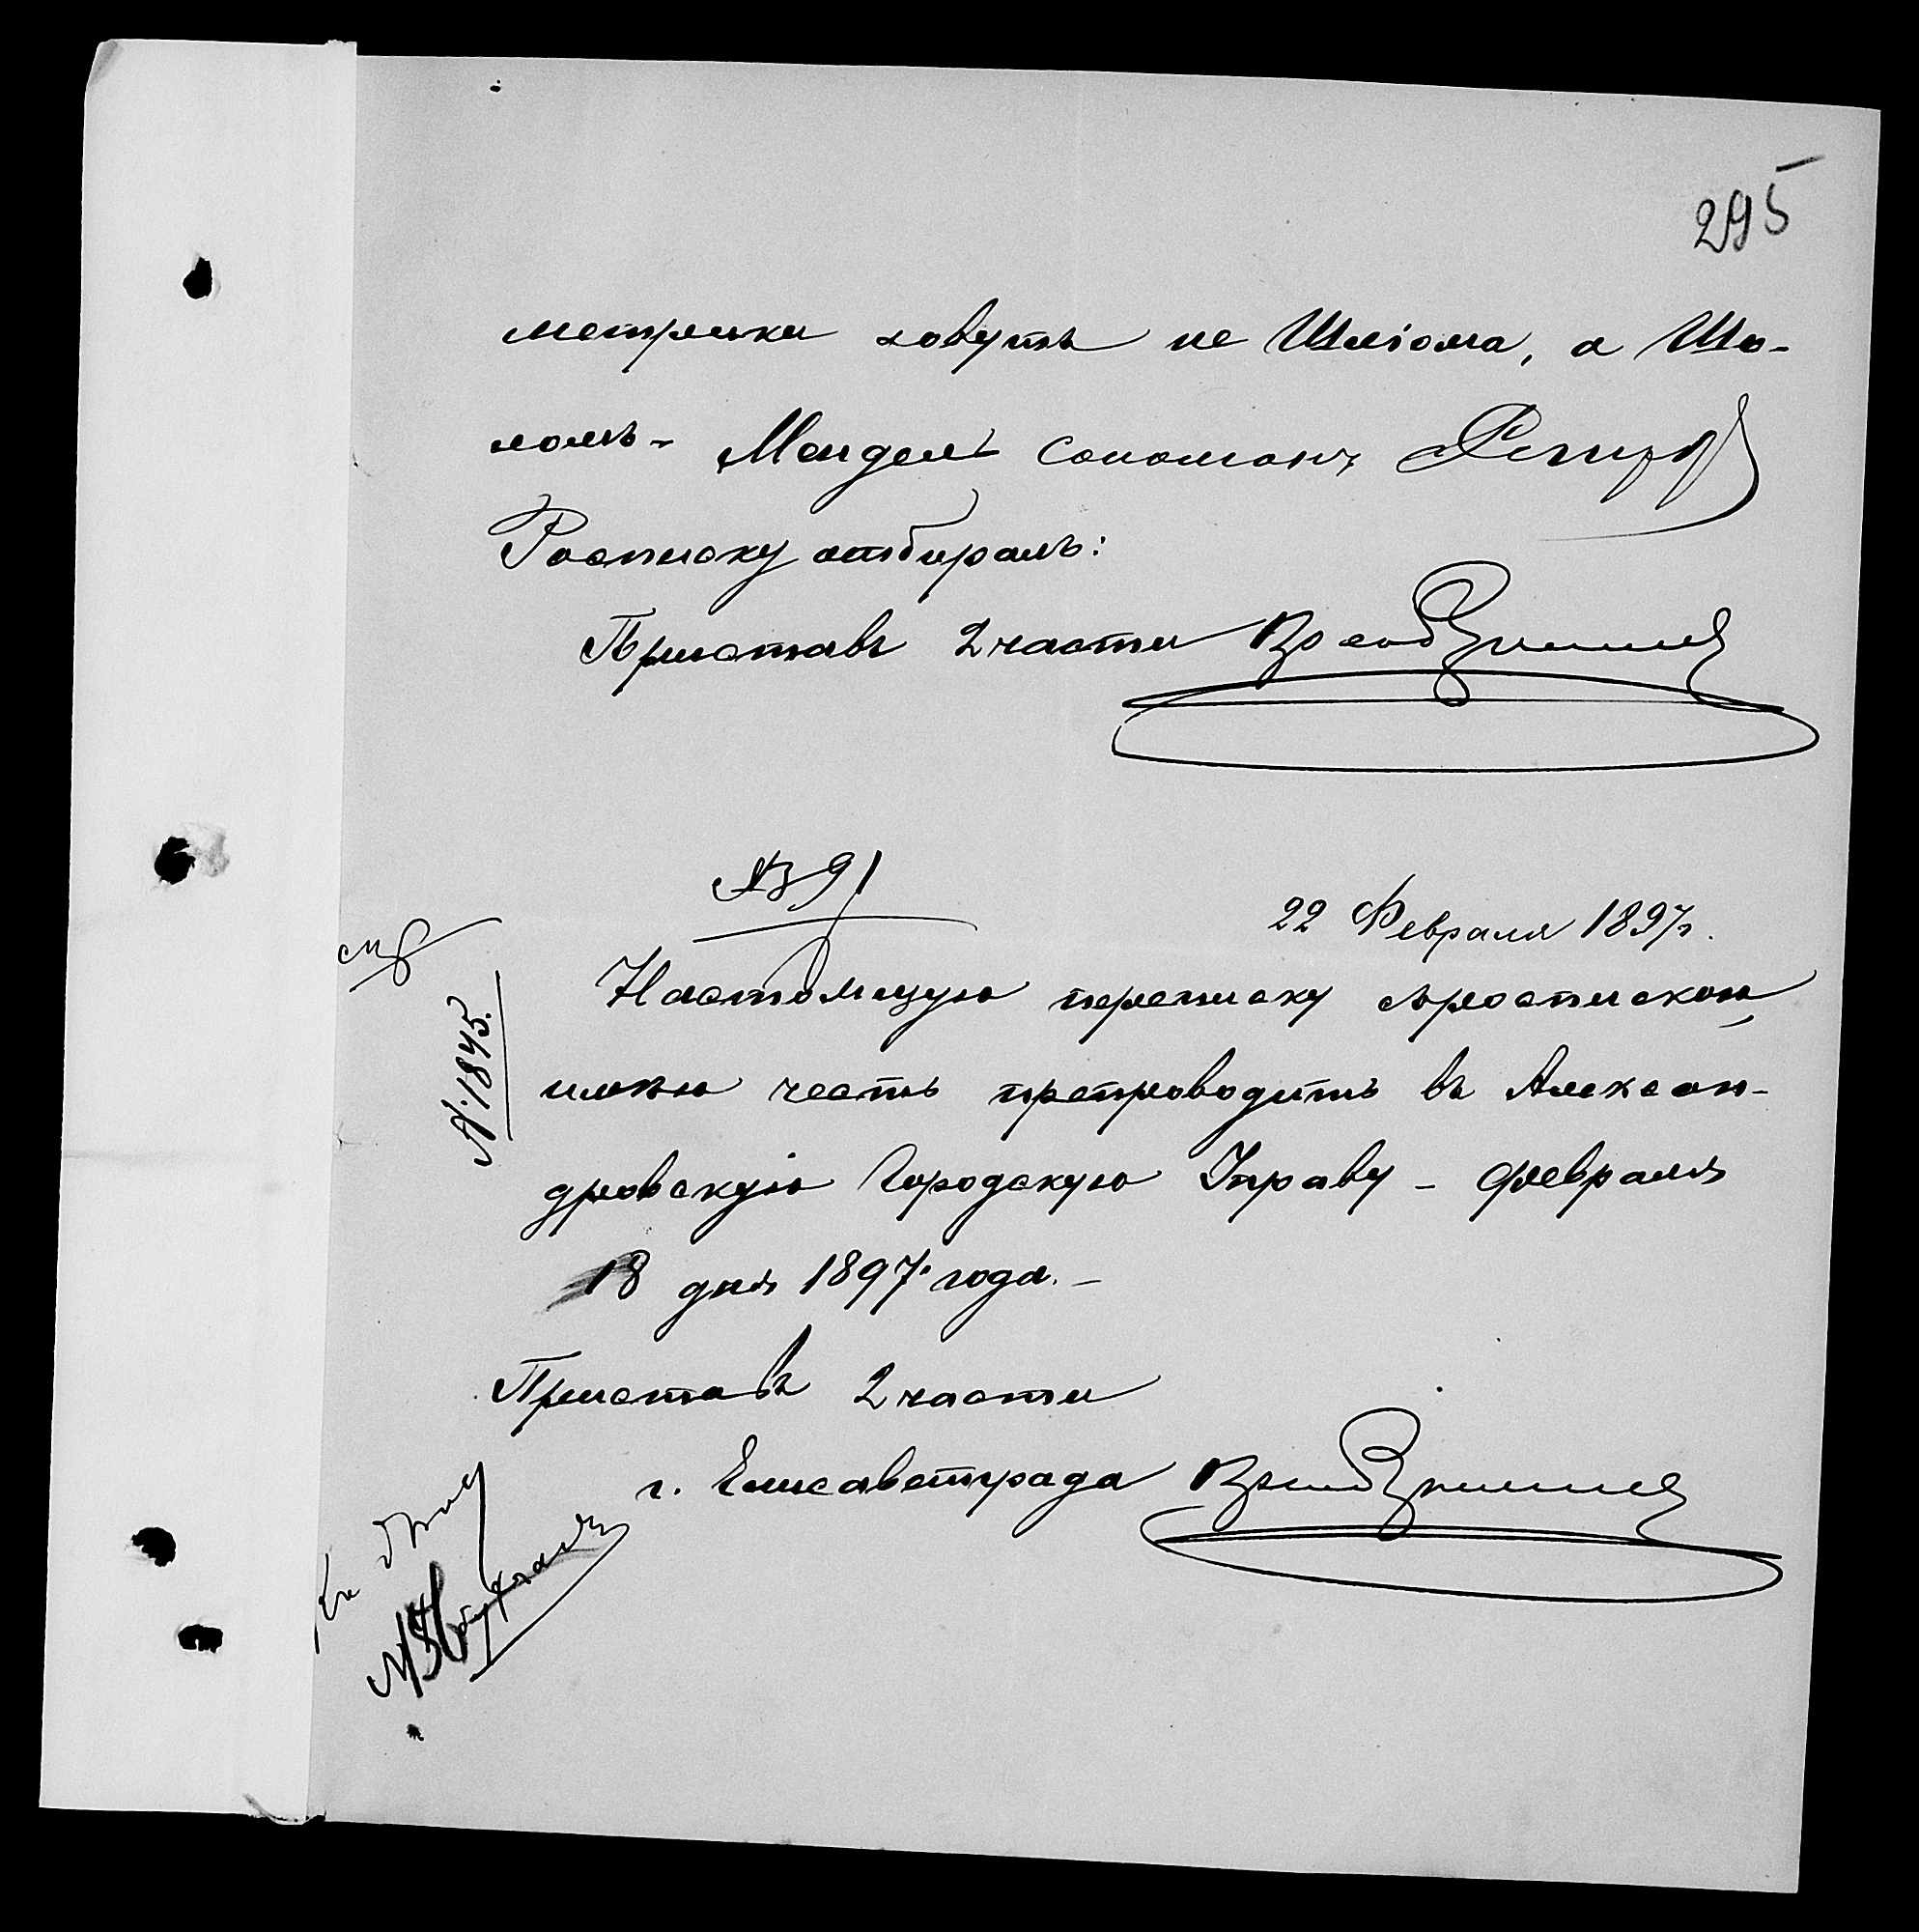 295
метрики зовутъ не Шліома, а Шо-
ломъ- Мендель Соломонъ
Росписку отбиралъ:
Приставъ 2 части
№ 391
22 Февраля 1897г.
Настоящую переписку съ роспискою,
№ 1845.
имѣю честь препроводить въ Алексан-
дровскую Городскую Управу - Февраля
18 дня 1897 года.-
Приставъ 2 части
г. Елисаветграда